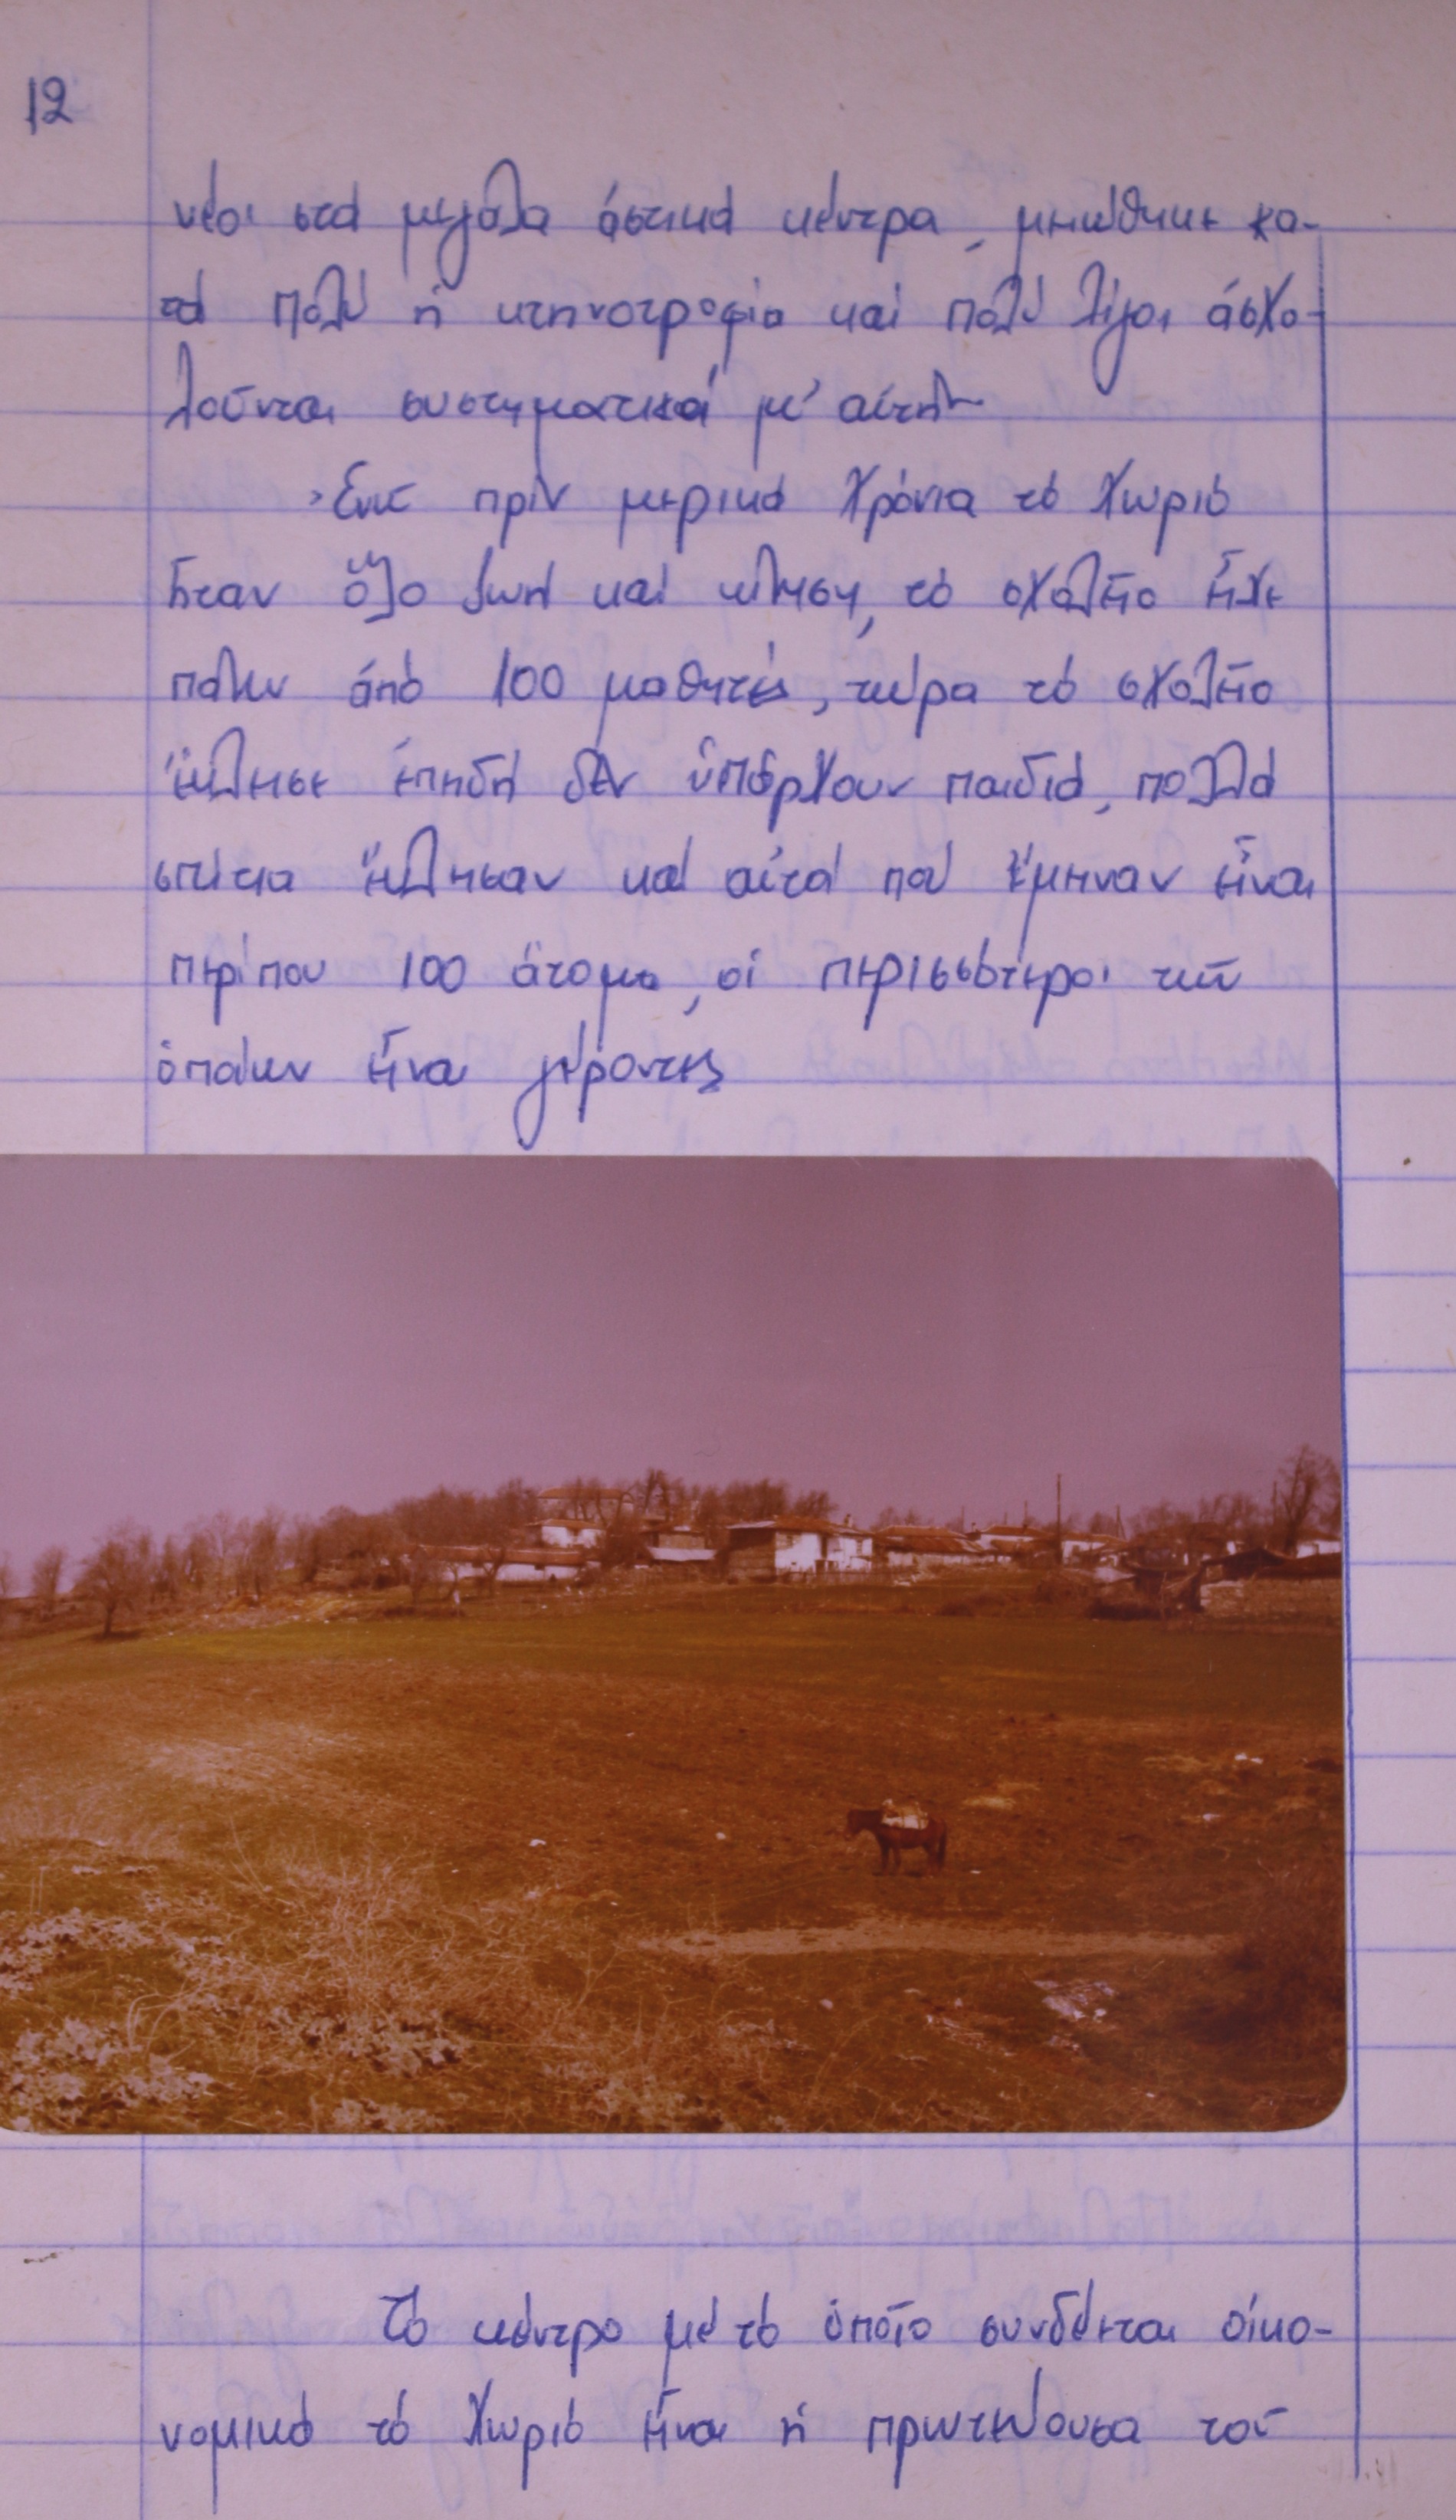 12
νέοι στά μεγάλα ἀστικά κέντρα, μειώθηκε κα-
τά πολύ ἡ κτηνοτροφία καί πολύ λίγοι ἀσχο-
λοῦνται συστηματικά μ' αὐτήν
Ἐνῶ πρίν μερικά χρόνια τό χωριό
ἦταν ὅλο ζωή καί κίνηση, τό σχολεῖο εἶχε
πάνω ἀπό 100 μαθητές, τώρα τό σχολεῖο
ἔκλεισε ἐπειδή δέν ὑπάρχουν παιδιά, πολλά
σπίτια ἔκλεισαν καί αὐτά πού ἔμειναν εἶναι
περίπου 100 ἄτομα, οἱ περισσότεροι τῶν
ὁποίων εἶναι γέροντες
Τό κέντρο μέ τό ὁποῖο συνδέεται οἰκο-
νομικά τό χωριό εἶναι ἡ πρωτεύουσα τοῦ